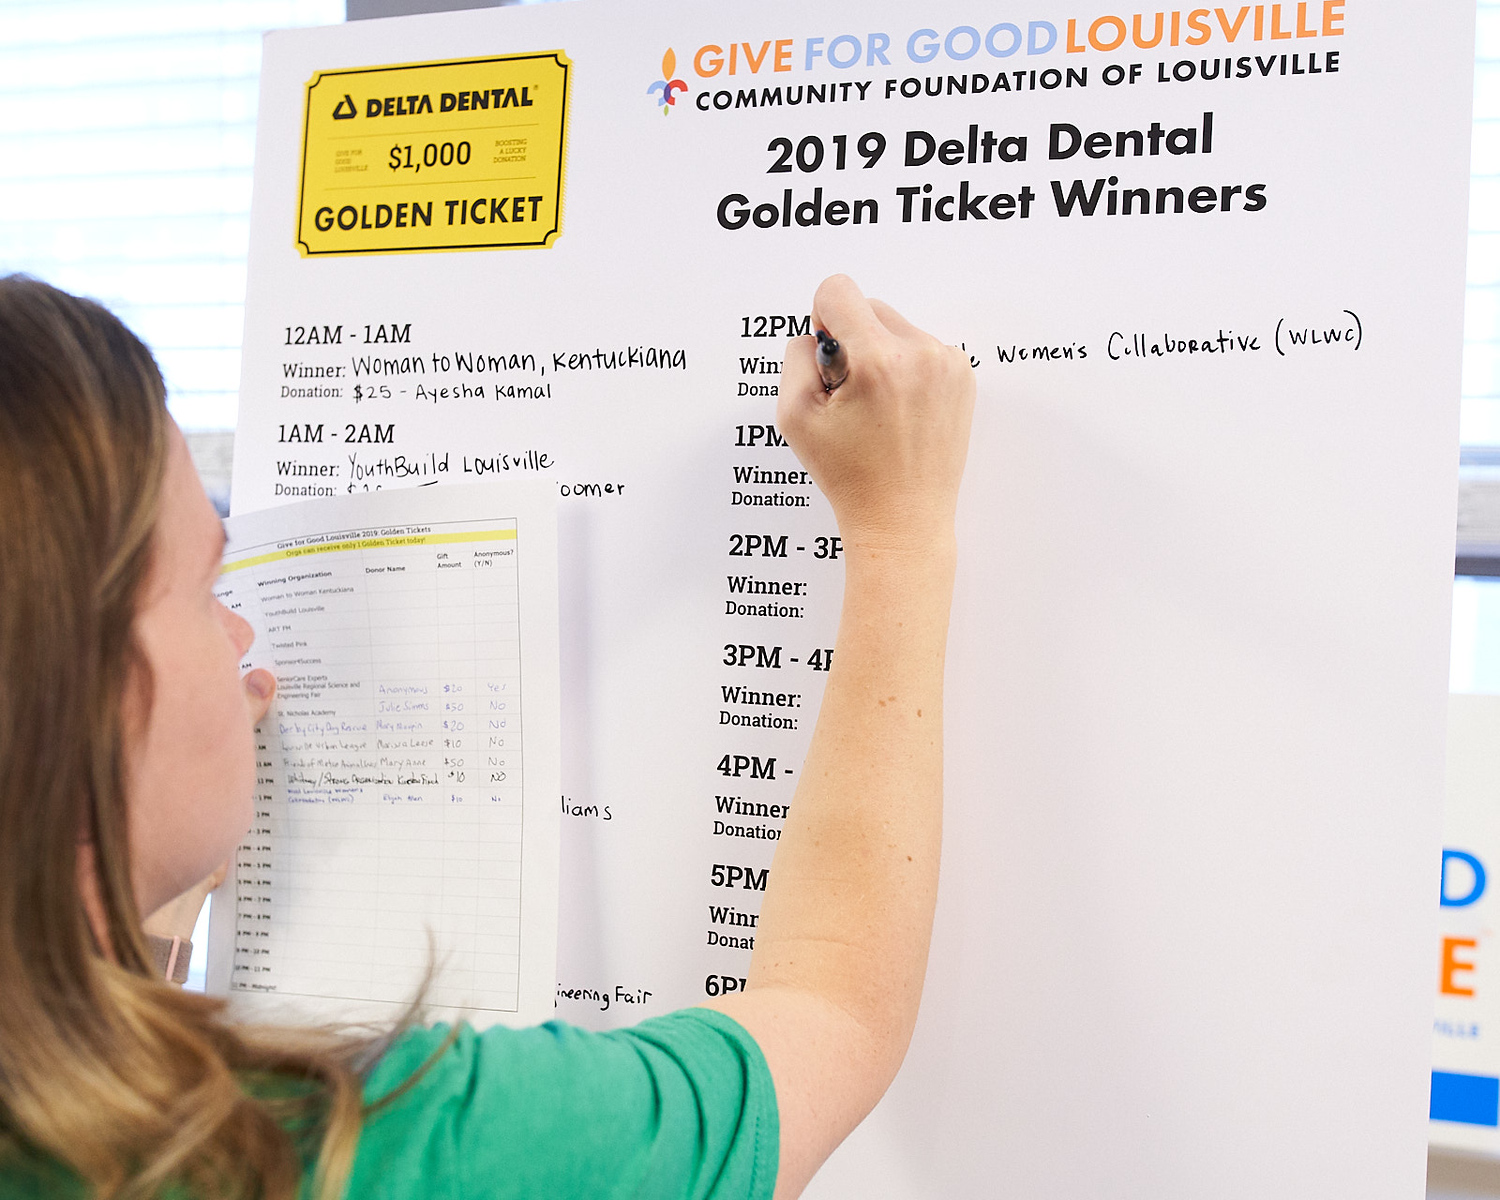 DELTA DENTAL
GIVE FOR GOOD LOUISVILLE
$1,000
BOOSTING A LUCKY DONATION
GOLDEN TICKET
GIVE FOR GOOD LOUISVILLE
COMMUNITY FOUNDATION OF LOUISVILLE
2019 Delta Dental
Golden Ticket Winners
12AM - 1AM
Winner: Woman to Woman, Kentuckiana
Donation: $25 - Ayesha Kamal
1AM - 2AM
Winner: YouthBuild Louisville
Donation: oomer
liams
ineering Fair
12PM
Winn Women's Collaborative (WLWC)
Dona
1PM
Winner:
Donation:
2PM - 3P
Winner:
Donation:
3PM - 4P
Winner:
Donation:
4PM -
Winner
Donation
5PM
Winn
Donat
6P
Give for Good Louisville 2019: Golden Tickets
Orgs can receive only 1 Golden Ticket today!
Winning Organization Donor Name Gift Amount Anonymous? (Y/N)
AM Woman to Woman Kentuckiana
YouthBuild Louisville
Twisted Pink
AM Sponsor4Success
SeniorCare Experts
Louisville Regional Science and
Engineering Fair Anonymous $20 Yes
St. Nicholas Academy Julie Simms $50 No
Derby City Dog Rescue $20 No
AM Louisville Urban League $10 No
11 AM Mary Anne $50 No
12 PM $10 No
1 PM West Louisville Women's
Collaborative (WLWC) Elijah $10 No
2 PM
- 3 PM
3 PM - 4 PM
4 PM - 5 PM
5 PM - 6 PM
6 PM - 7 PM
7 PM - 8 PM
8 PM - 9 PM
9 PM - 10 PM
10 PM - 11 PM
11 PM - Midnight!
D
E
VILLE